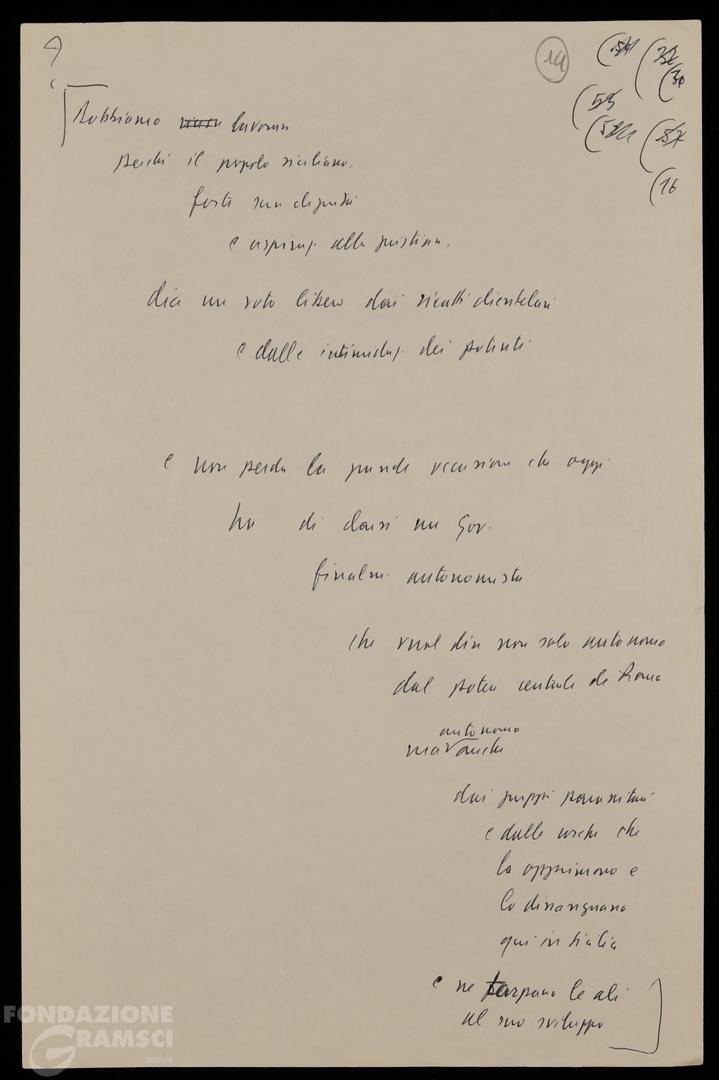 ?
14
[Dobbiamo lavorare
perché il popolo siciliano.
forte sua dignità
e aspiraz. alla giustizia.
dia un voto libero dai ricatti clientelari
e dalle intimidaz. dei potenti
e non perda la grande occasione che oggi
ha di darsi un Gov.
finalm. autonomista
che vuol dire non solo autonomo
dal potere centrale di Roma
autonomo
ma anche
dai gruppi parassitari
e dalle cosche che
lo opprimono e
lo dissanguano
qui in Sicilia
e ne tarpano le ali
al suo sviluppo]
(16
FONDAZIONE
GRAMSCI
onlus